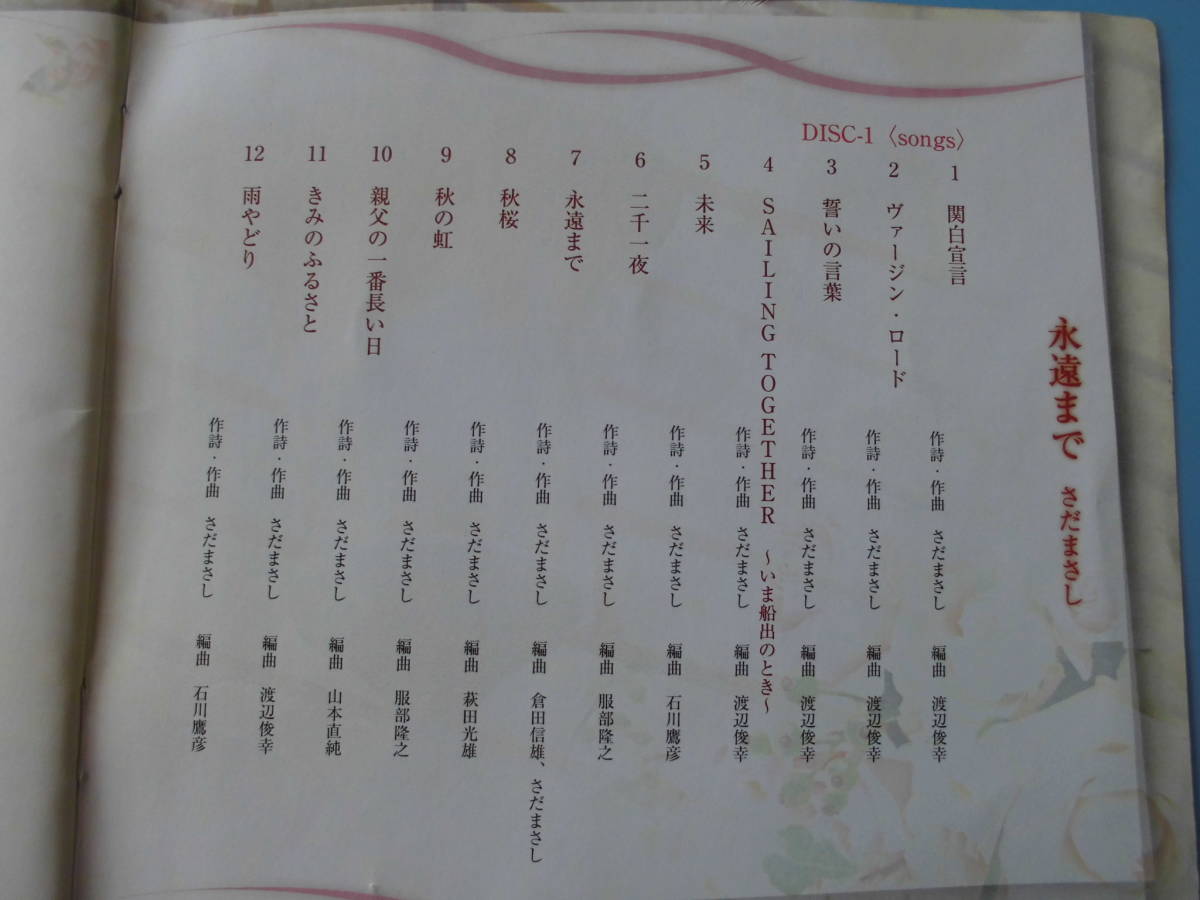 永遠まで さだまさし
DISC-1〈songs〉
1 関白宣言 作詩・作曲 さだまさし 編曲 渡辺俊幸
2 ヴァージン・ロード 作詩・作曲 さだまさし 編曲 渡辺俊幸
3 誓いの言葉 作詩・作曲 さだまさし 編曲 渡辺俊幸
4 SAILING TOGETHER 〜いま船出のとき〜 作詩・作曲 さだまさし 編曲 渡辺俊幸
5 未来 作詩・作曲 さだまさし 編曲 石川鷹彦
6 二千一夜 作詩・作曲 さだまさし 編曲 服部隆之
7 永遠まで 作詩・作曲 さだまさし 編曲 倉田信雄、さだまさし
8 秋桜 作詩・作曲 さだまさし 編曲 萩田光雄
9 秋の虹 作詩・作曲 さだまさし 編曲 服部隆之
10 親父の一番長い日 作詩・作曲 さだまさし 編曲 山本直純
11 きみのふるさと 作詩・作曲 さだまさし 編曲 渡辺俊幸
12 雨やどり 作詩・作曲 さだまさし 編曲 石川鷹彦